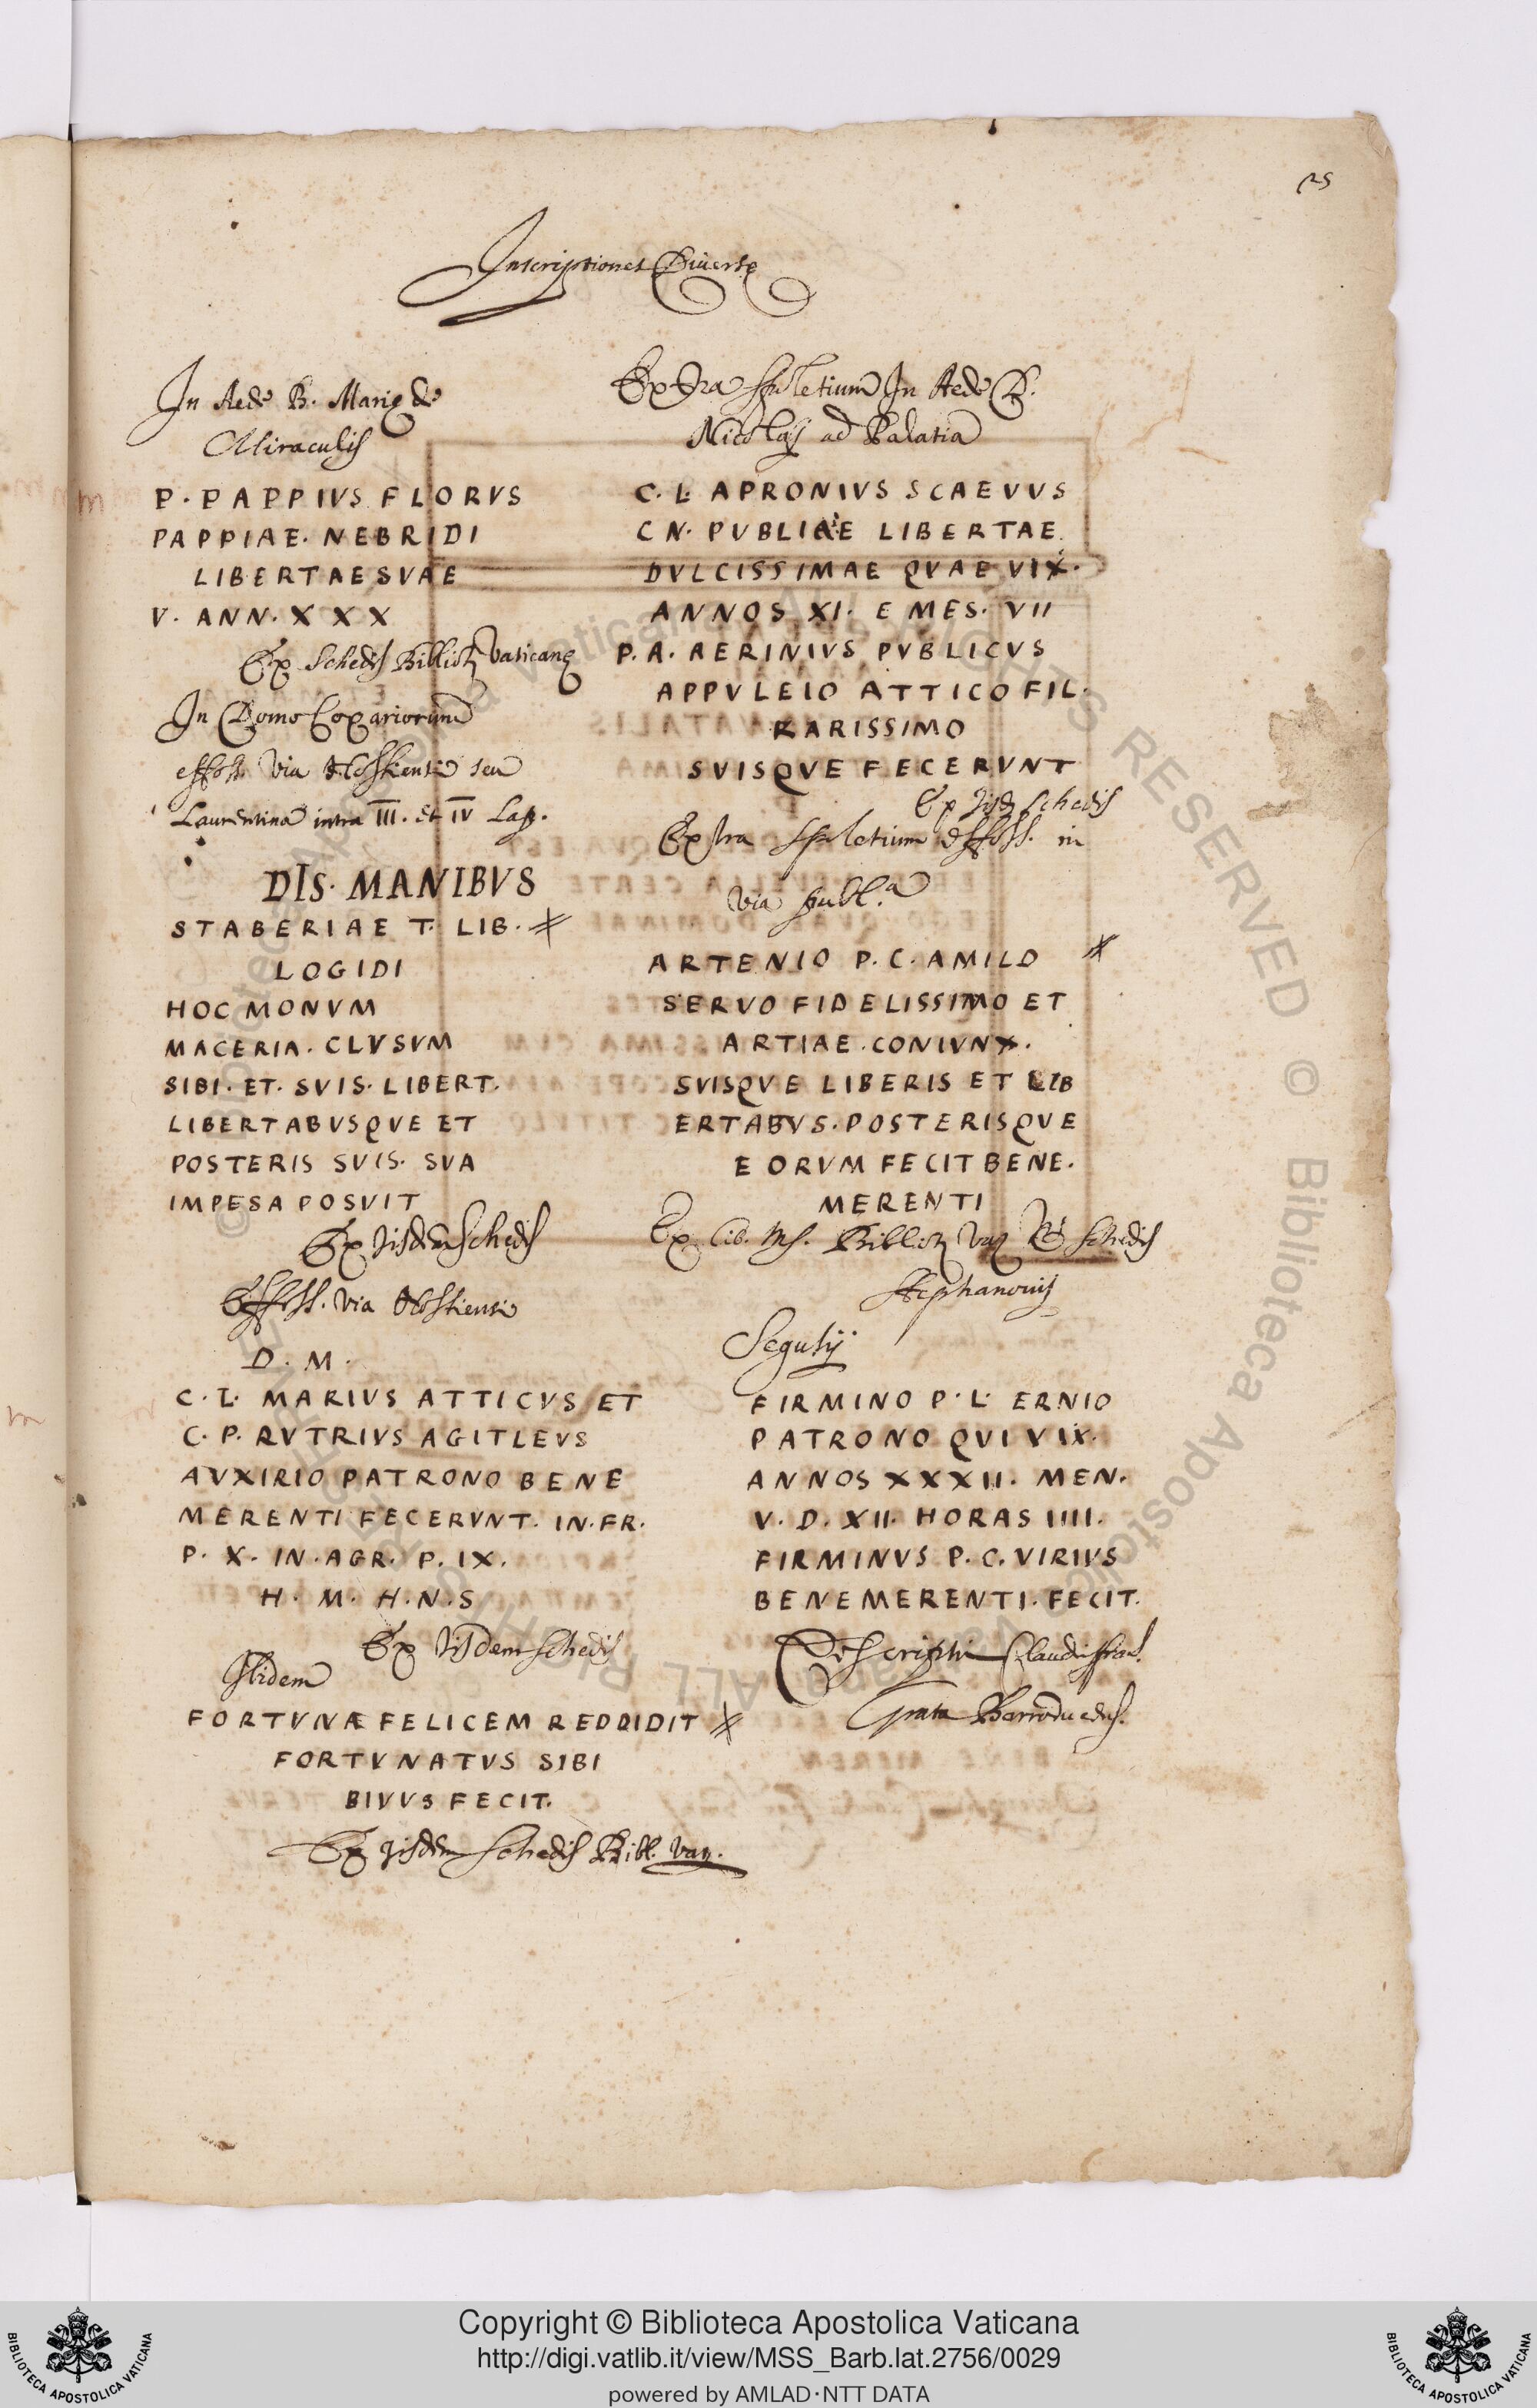 25
Inscriptiones Diuersę
In Aede B. Marię de
Miraculis
P. PAPPIVS FLORVS
PAPPIAE. NEBRIDI
LIBERTAE SVAE
V. ANN. X X X
Ex Schedis Biblioth Vaticanę
In Domo
effoss. Via Hostiensi seu
Laurentina intra III. et IV Lap.
DIS. MANIBVS
STABERIAE T. LIB.
LOGIDI
HOC MONVM
MACERIA. CLVSVM
SIBI. ET. SVIS. LIBERT.
LIBERTABVSQVE ET
POSTERIS SVIS. SVA
IMPESA POSVIT
Ex Iisdem Schedis
Effoss. Via Hostiensi
D. M.
C. L. MARIVS ATTICVS ET
C. P. RVTRIVS AGITLEVS
AVXIRIO PATRONO BENE
MERENTI FECERVNT. IN. FR.
P. X. IN. AGR. P. IX.
H. M. H. N. S
Ex Iisdem Schedis
Ibidem
FORTVNÆ FELICEM REDDIDIT
FORTVNATVS SIBI
BIVVS FECIT.
Ex iisdem Schedis Bibl. Vaɀ.
Extra Spoletium In Aede B.
Nicolaij ad Palatia
C. L. APRONIVS SCAEVVS
CN. PVBLIAE LIBERTAE
DVLCISSIMAE QVAE VIX.
ANNOS XI. E MES. VII
P. A. AERINIVS PVBLICVS
APPVLEIO ATTICO FIL.
RARISSIMO
SVISQVE FECERVNT
Ex Iisd Schedis
Extra Spoletium Effoss. in
via publ.a
ARTENIO P. C. AMILO
SERVO FIDELISSIMO ET
ARTIAE. CONIVNX.
SVISQVE LIBERIS ET LIB
ERTABVS. POSTERISQVE
EORVM FECIT BENE.
MERENTI
Ex lib. Ms. Biblioth Schedis
Stephanonij
Segusij
FIRMINO P. L. ERNIO
PATRONO QVI VIX.
ANNOS XXXII. MEN.
V. D. XII. HORAS IIII.
FIRMINVS P. C. VIRIVS
BENEMERENTI. FECIT.
Descripsi
Copyright © Biblioteca Apostolica Vaticana
http://digi.vatlib.it/view/MSS_Barb.lat.2756/0029
powered by AMLAD·NTT DATA
BIBLIOTECA APOSTOLICA VATICANA
BIBLIOTECA APOSTOLICA VATICANA